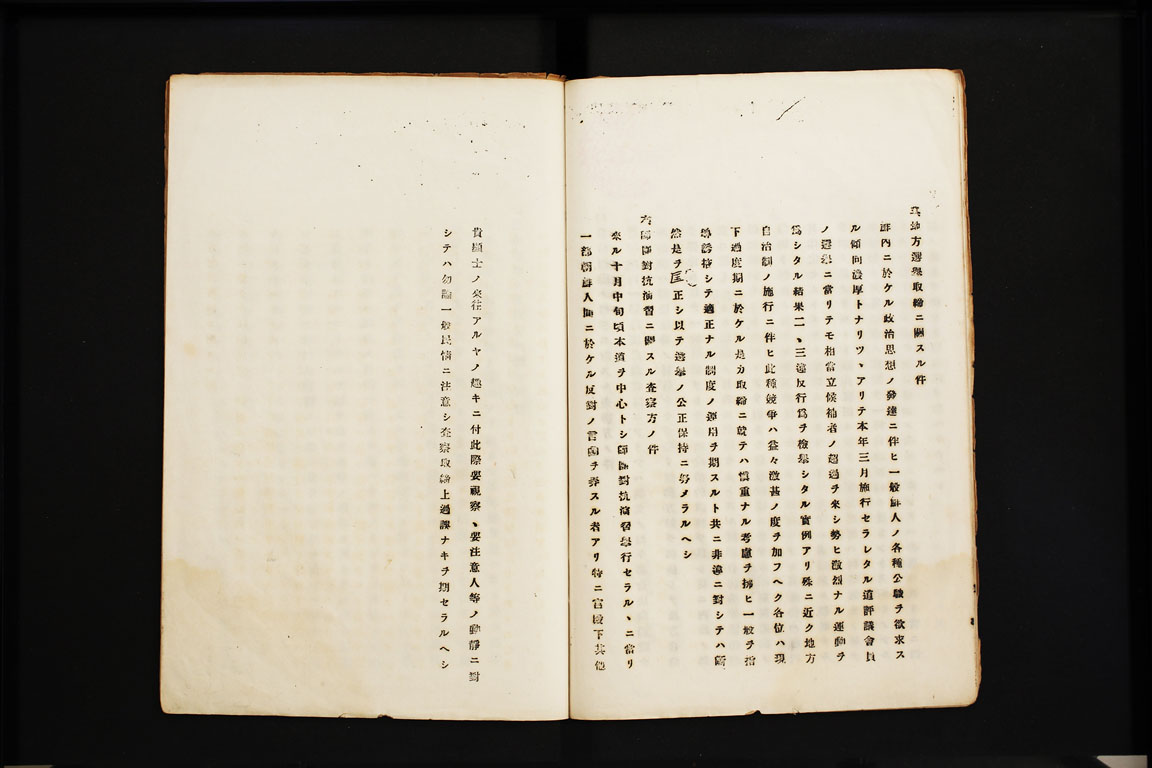 五、地方選擧取締ニ關スル件
鮮內ニ於ケル政治思想ノ發達ニ件ヒ一般鮮人ノ各種公職ヲ欲求ス
ル傾向濃厚トナリツヽアリテ本年三月施行セラレタル道評議會員
ノ選擧ニ當リテモ相當立候補者ノ超過ヲ來シ勢ヒ激烈ナル運動ヲ
爲シタル結果二、三違反行爲ヲ檢擧シタル實例アリ殊ニ近ク地方
自治制ノ施行ニ件ヒ此種競爭ハ益々激甚ノ度ヲ加フヘク各位ハ現
下過度期ニ於ケル是カ取締ニ就テハ愼重ナル考慮ヲ拂ヒ一般ヲ指
導誘掖シテ適正ナル制度ノ運用ヲ期スルト共ニ非違ニ對シテハ斷
然是ヲ匡正シ以テ選擧ノ公正保持ニ努メラルヘシ
六、師團對抗演習ニ關スル査察方ノ件
來ル十月中旬頃本道ヲ中心トシ師團對抗演習擧行セラルヽニ當リ
一部朝鮮人間ニ於ケル反對ノ言動ヲ弄スル者アリ特ニ官殿下其他
貴顯士ノ來往アルヤノ趣キニ付此際要視察、要注意人等ノ動靜ニ對
シテハ勿論一般民情ニ注意シ査察取締上過誤ナキヲ期セラルヘシ